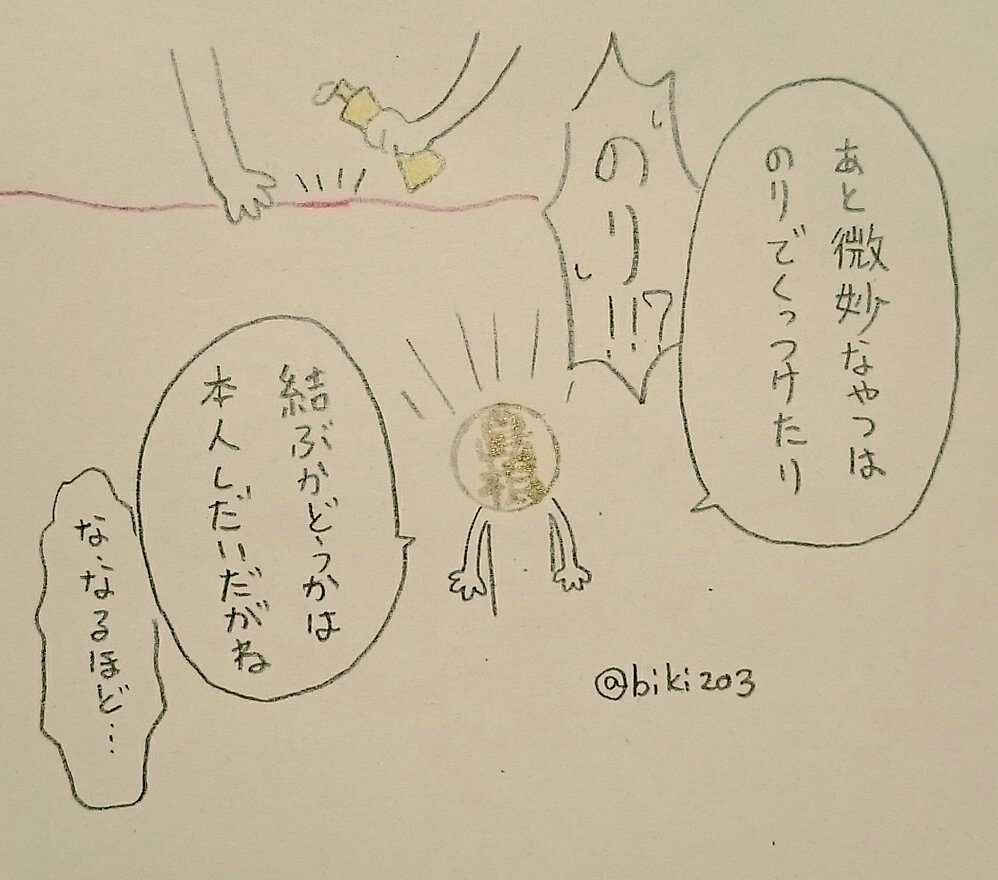 あと微妙なやつは
のりでくっつけたり
のり!!?
結ぶかどうかは
本人しだいだがね
な、なるほど…
@biki203